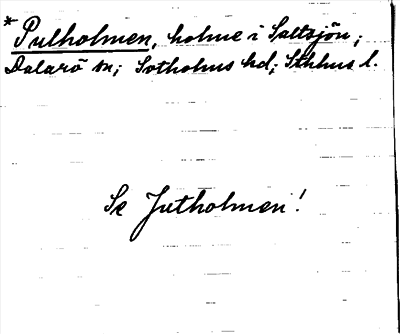 * Pulholmen, holme i Saltsjön;
Dalarö sn; Sotholms hd; Sthlms l.
Se Jutholmen!